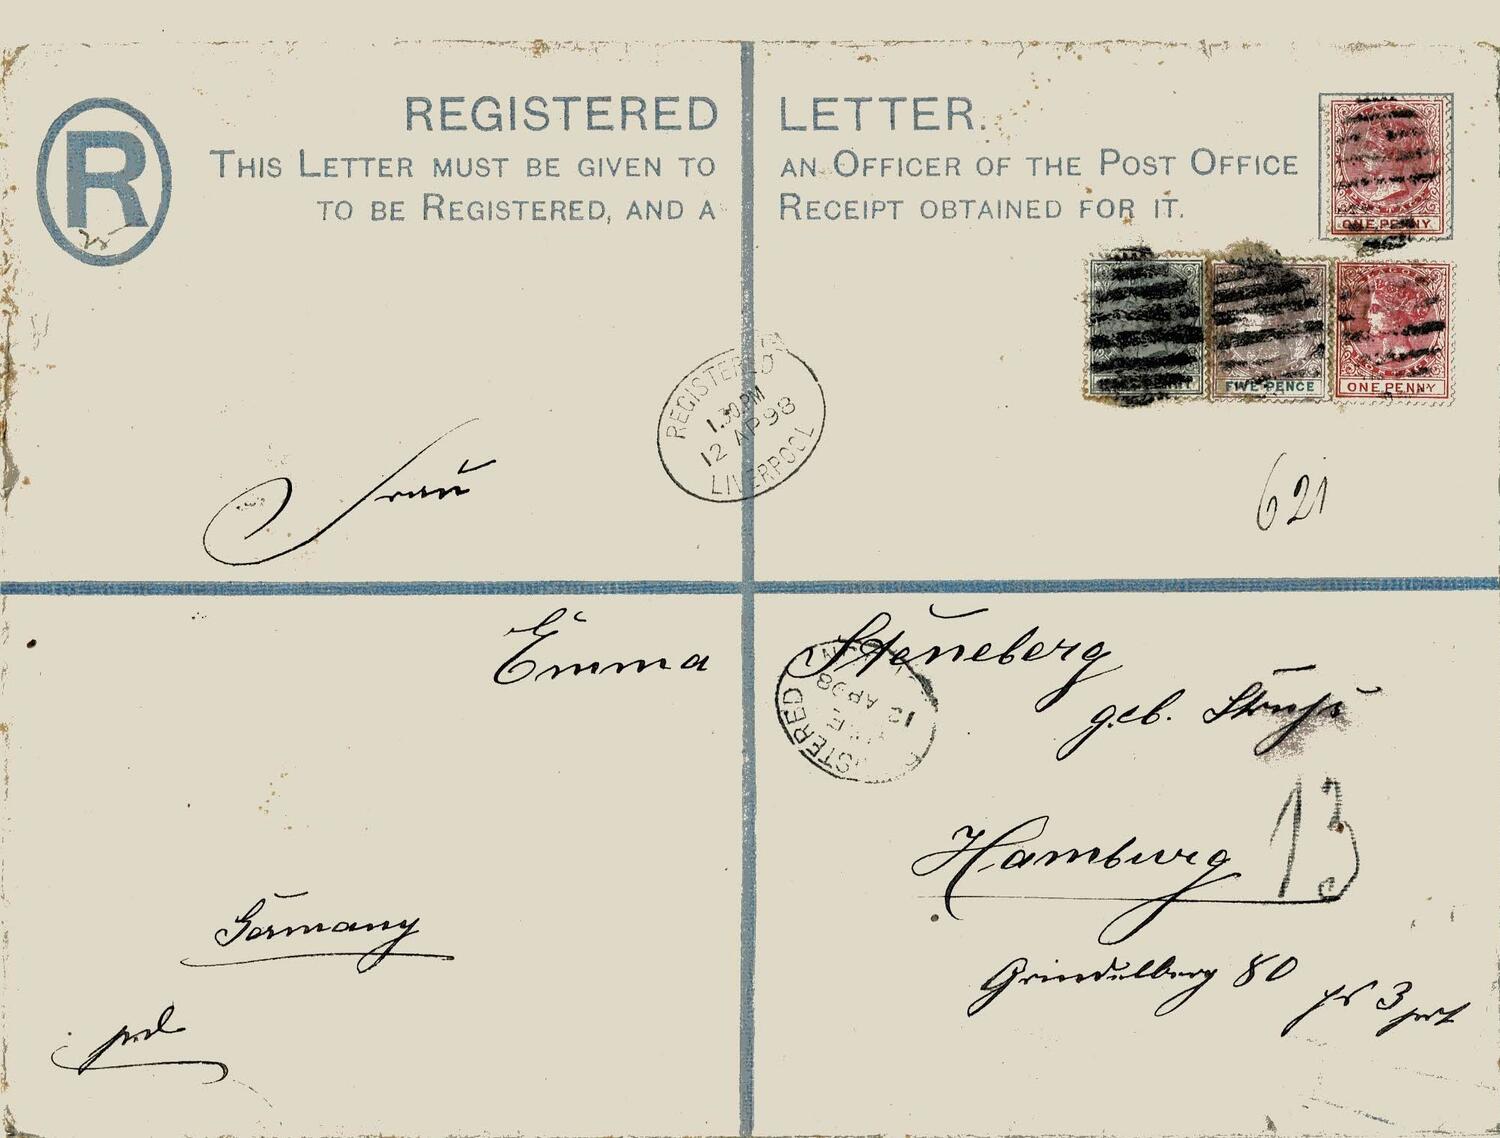 REGISTERED LETTER.
THIS LETTER MUST BE GIVEN TO AN OFFICER OF THE POST OFFICE
TO BE REGISTERED, AND A RECEIPT OBTAINED FOR IT.
R
ONE PENNY
FIVE PENCE
LAGOS
ONE PENNY
REGISTERED
1.30PM
12 AP 98
LIVERPOOL
621
Frau
Emma Steneberg
geb.
REGISTERED
12 AP 98
13
Hamburg
Germany
Grindelberg 80
3